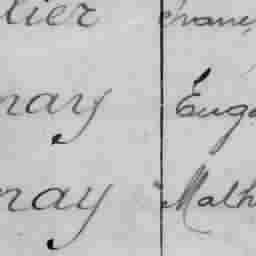 lier Franç
nay Euge
nay Math